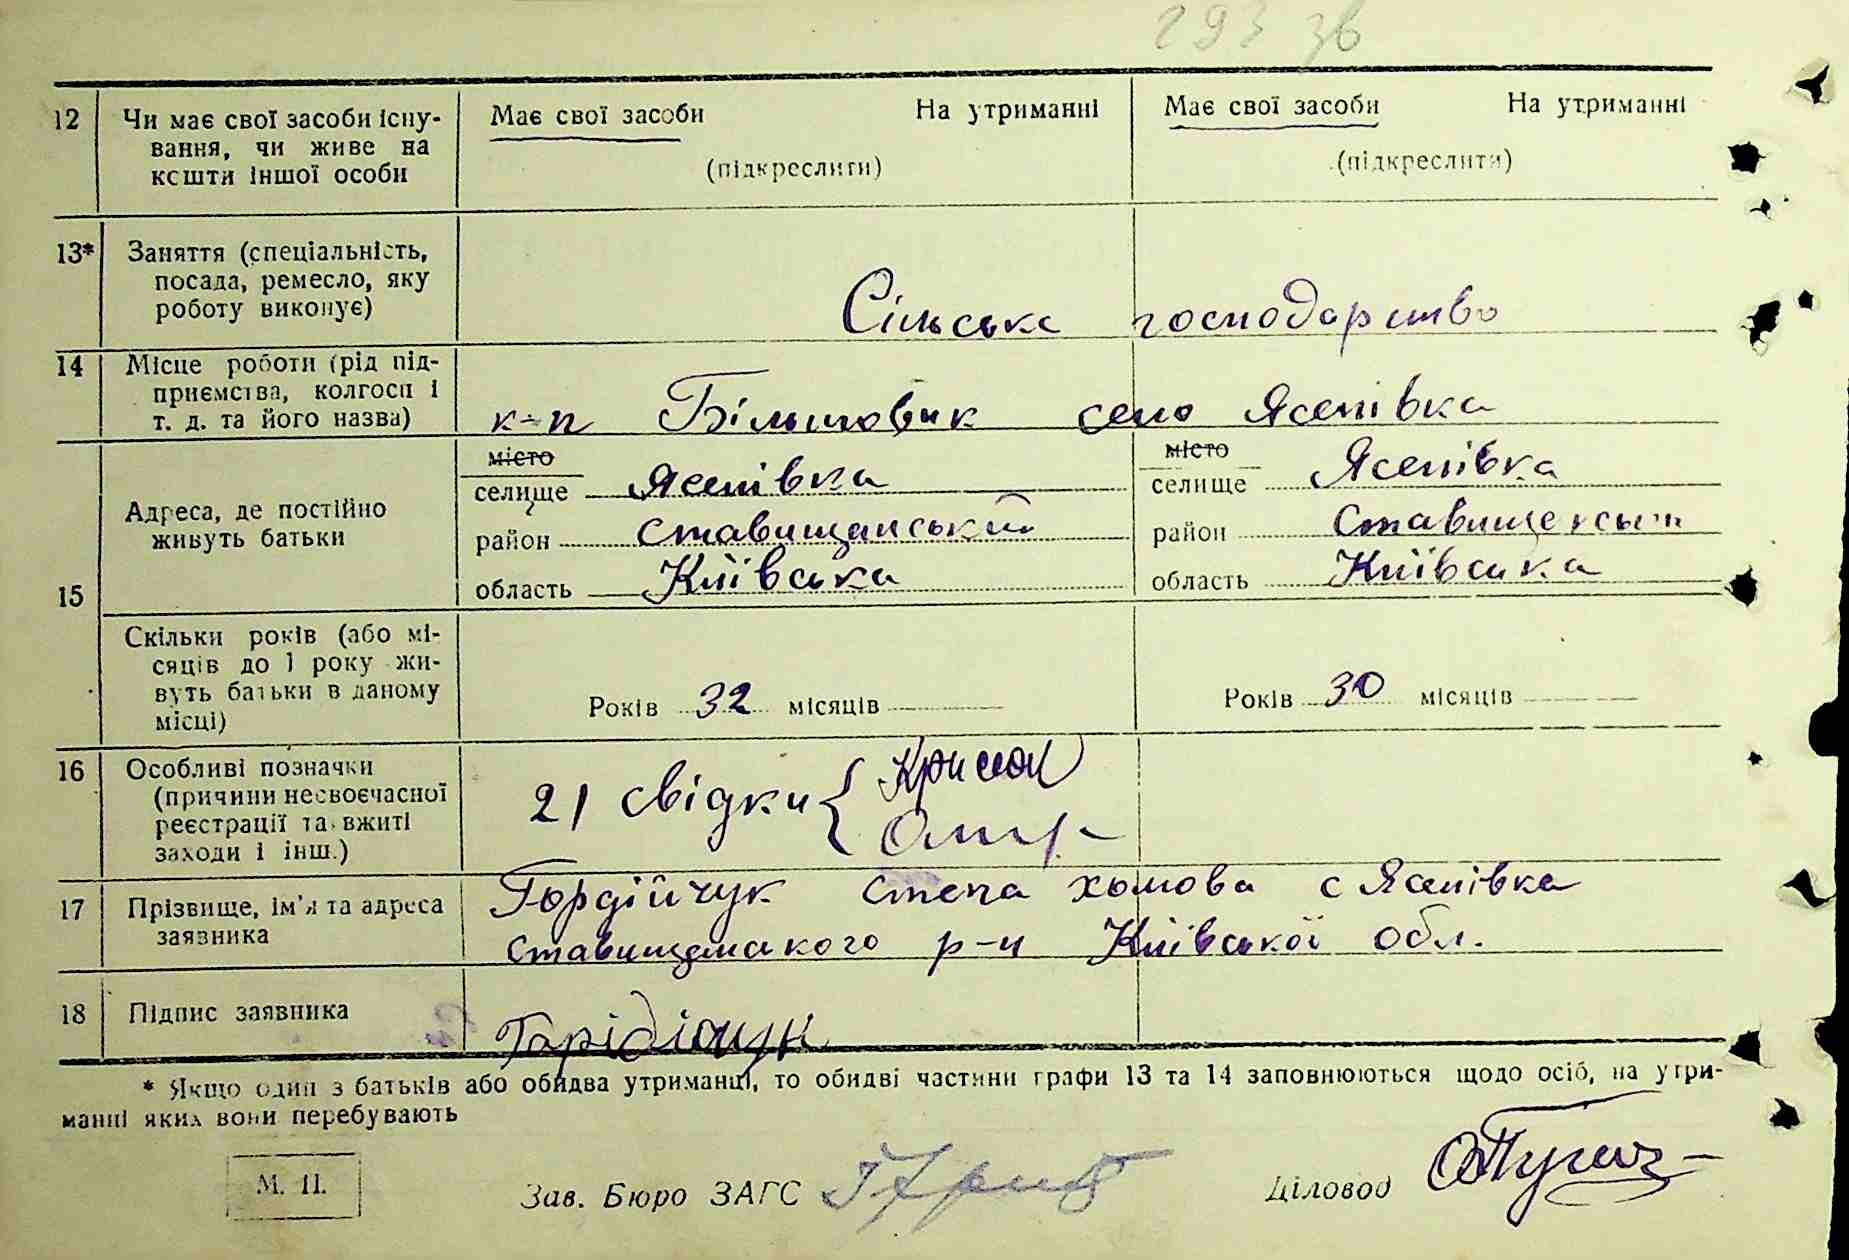 293 зв
12 Чи має свої засоби існу-
вання, чи живе на
кошти іншої особи
Має свої засоби На утриманні
(підкреслити)
Має свої засоби На утриманні
(підкреслити)
13* Заняття (спеціальність,
посада, ремесло, яку
роботу виконує)
Сільське господарство
14 Місце роботи (рід під-
приємства, колгосп і
т. д. та його назва)
к-п Більшовик село Ясенівка
15
Адреса, де постійно
живуть батьки
місто
селище Ясенівка
район Ставищанський
область Київська
місто
селище Ясенівка
район Ставищенський
область Київська
Скільки років (або мі-
сяців до 1 року жи-
вуть батьки в даному
місці)
Років 32 місяців
Років 30 місяців
16 Особливі позначки
(причини несвоєчасної
реєстрації та вжиті
заходи і інш.)
21 свідки
17 Прізвище, ім'я та адреса
заявника
Гордійчук Степа хомова с Ясенівка
Ставищанського р-н Київської обл.
18 Підпис заявника
* Якщо один з батьків або обидва утриманці, то обидві частини графи 13 та 14 заповнюються щодо осіб, на утри-
манні яких вони перебувають
М. П.
Зав. Бюро ЗАГС
Діловод